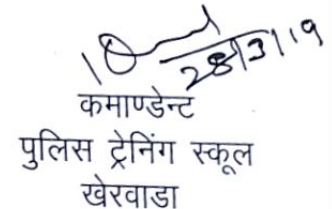 28/3/19
कमाण्डेन्ट
पुलिस ट्रेनिंग स्कूल
खेरवाडा